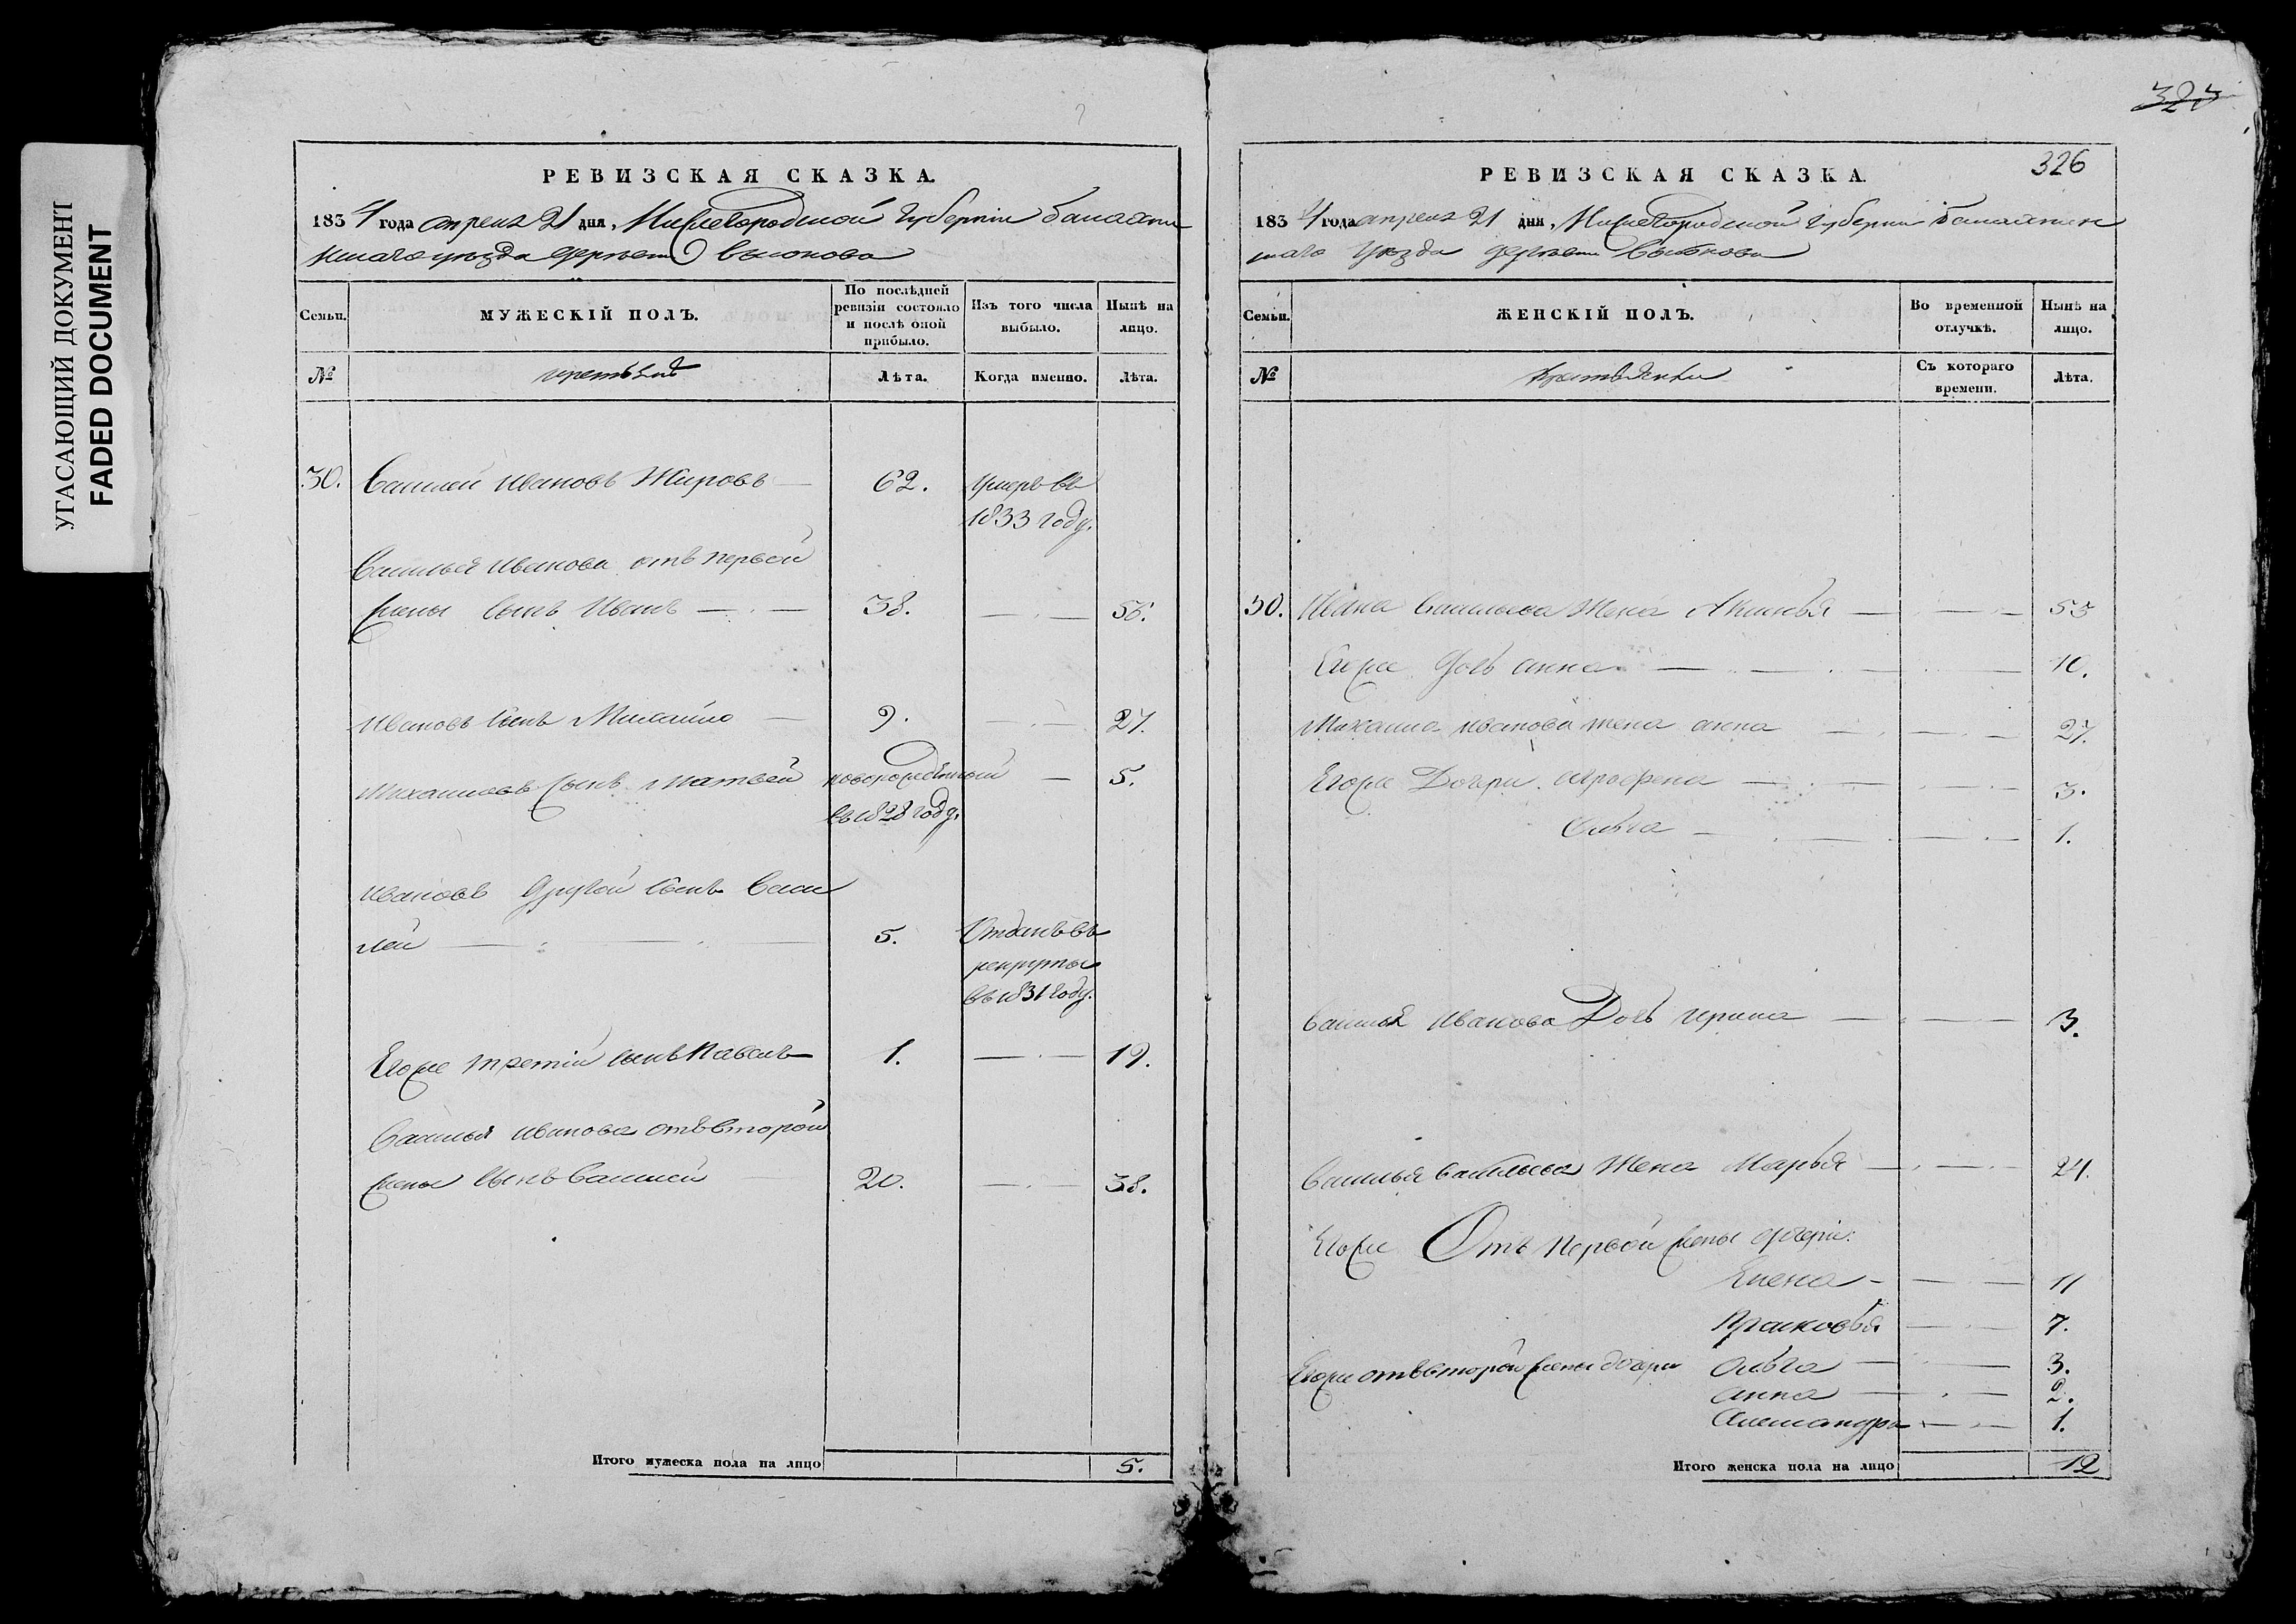 УГАСАЮЩИЙ ДОКУМЕНТ
FADED DOCUMENT
РЕВИЗСКАЯ СКАЗКА.
1834 года апреля 21 дня, Нижегородской Губернiи Балахни
нскаго уезда деревни Высокова
Семьи.
МУЖЕСКIЙ ПОЛЪ.
По послѣдней ревизiи состояло и послѣ оной прибыло.
Изъ того числа выбыло.
Нынѣ на лицо.
№
Лѣта.
Когда именно.
Лѣта.
30. Василей Ивановъ Жировъ 62. умеръ въ
1833 году.
Василья Иванова отъ первой
жены сынъ Иванъ 38. 56.
Ивановъ сынъ Михайло 9. 27.
Михаиловъ сынъ Матвей новорожденный 5.
въ 1828 году.
Ивановъ другой сынъ Васи
лей 5. Отданъ въ
рекруты
въ 1831 году.
Егоже третiй сынъ Павелъ 1. 19.
Василья Иванова отъ второй
жены сынъ Василей 20. 38.
Итого мужеска пола на лицо 5.
323
326
РЕВИЗСКАЯ СКАЗКА.
1834 года апреля 21 дня, Нижегородской Губернiи Балахнин
скаго уезда деревни Высокова
Семьи.
ЖЕНСКIЙ ПОЛЪ.
Во временной отлучкѣ.
Нынѣ на лицо.
№
Съ котораго времени.
Лѣта.
30. Ивана Васильева жена Акинья 55
Егоже дочь анна 10.
Михаила Иванова жена анна 27.
Егоже Дочери аграфена 3.
Ольга 1.
Василья Иванова Дочь Ирина 3.
Василья Васильева Жена Марья 24.
Егоже Отъ первой жены дочери:
Елена 11
Прасковья 7.
Егоже отъ второй жены дочери Ольга 3.
анна 2.
Александра 1.
Итого женска пола на лицо 12